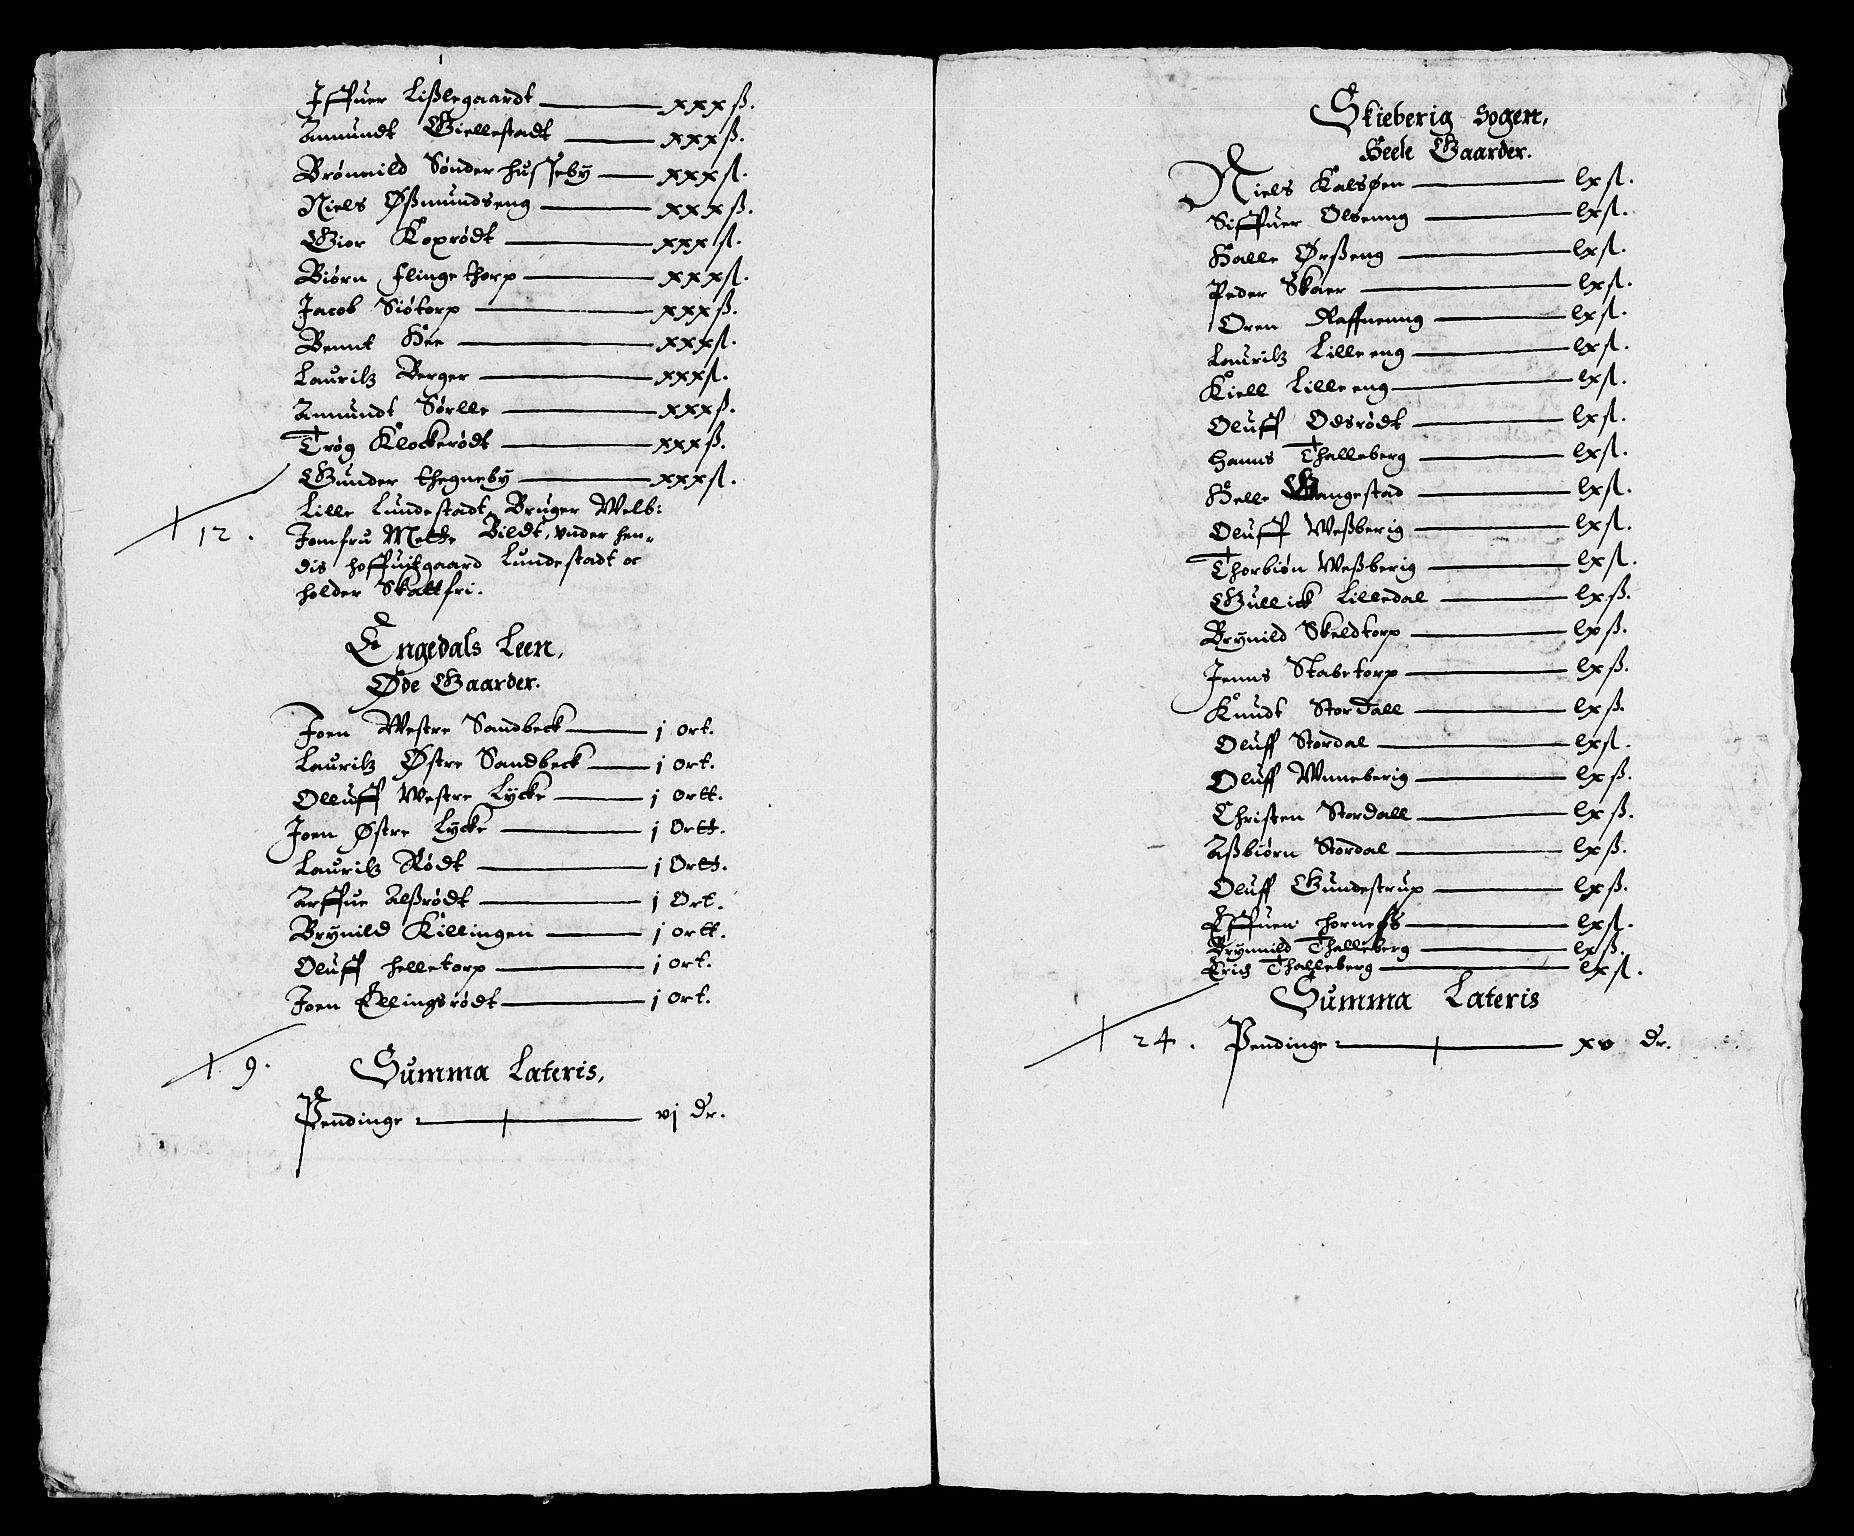 Iffuer Lißlegaardt — xxx ß.
Amundt Giellestadt — xxx ß.
Brönnild Sønder husseby — xxx ß.
Niels Øßmundseng — xxx ß.
Gior Koxrødt — xxx ß.
Biörn flinge thorp — xxx ß.
Jacob Siötorp — xxx ß.
Bennt Hee — xxx ß.
Lauritz Berger — xxx ß.
Amundt Sörlle — xxx ß.
Trög Klockerödt — xxx ß.
Gunder thegneby — xxx ß.
Lille Lundestadt, Bruger Welb:
12. Jomfru Mette Bildt, vnder hen„
dis hoffuitgaard Lundestadt oc
holder Skattfri.
Engedals Leen,
Øde Gaarder.
Joen Westre Sandbeck — j ort.
Lauritz Østre Sandbeck — j ort.
Olluff Westre Lycke — j ortt.
Joen Østre Lycke — j Ortt.
Lauritz Rödt — j Ortt.
Arffue Alßrödt — j Ort.
Brynild Killingen — j ortt.
Oluff helletorp — j ort.
Joen Ellingsrödt — j ort.
9. Summa Lateris,
Pendinge — vj dr.
Skieberig Sogen,
Heele Gaarder.
Niels Kalsøen — lx ß.
Siffuer Olsenng — lx ß.
Halle Ørßeng — lx ß.
Peder Skaer — lx ß.
Oren Raffnenng — lx ß.
Lauritz Lille eng — lx ß.
Kiell Lille eng — lx ß.
Oluff Odsrödt — lx ß.
Hanns Thalleberg — lx ß.
Helle Gangestad — lx ß.
Oluff Weßberig — lx ß.
Thorbiön Weßberig — lx ß.
Gullick Lilledal — lx ß.
Brynild Skeldtorp — lx ß.
Jenns Stabetorp — lx ß.
Knudt Stordall — lx ß.
Oluff Stordal — lx ß.
Oluff Winneberig — lx ß.
Christen Stordall — lx ß.
Aßbiørn Stordal — lx ß.
Oluff Gundestrup — lx ß.
Effuen hornes — lx ß.
Brynnild Thalleberg — lx ß.
Erich Thalleberg — lx ß.
Summa Lateris
24. Pendinge — xv dr.